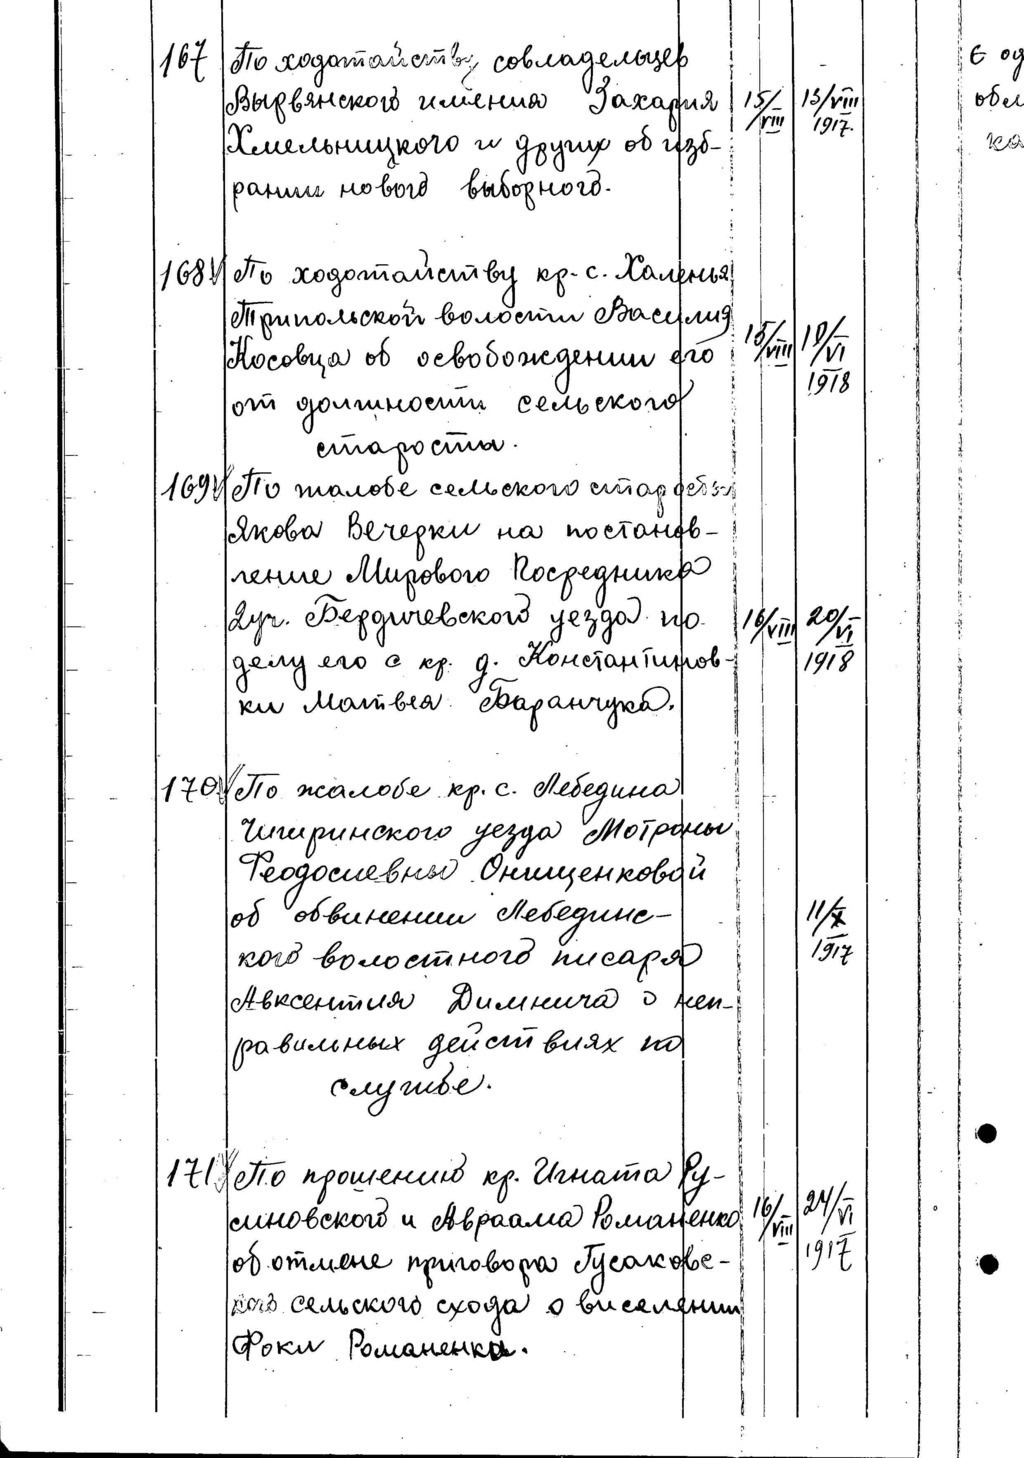 167 По ходотайству совладельцев
Вырвянского имения Захария 15/VIII 13/VIII
Хмельницкого и других об изб- 1917.
рании нового выборного.
168 По ходотайству кр-с. Халенья
Трипольской волости Василия 15/VIII 10/VI
Косовца об освобождении его 1918
от должности сельского
старосты.
169 По жалобе сельского старосты
Якова Вечерки на постанов-
ление Мирового Посредника
2уч. Бердичевского уезда по 16/VIII 20/VI
делу его с кр. д. Константинов- 1918
ки Матвея Баранчука.
170 По жалобе кр. с. Лебедина
Чигиринского уезда Мотроны
Феодосиевны Онищенковой
об обвинении Лебединс- 11/X
кого волостного писаря 1917
Авксентия Димнича о неп-
равильных действиях по
службе.
171 По прошению кр. Игната Ру-
синовского и Авраама Романенко 16/VIII 24/VI
об отмене приговора Гусаковс- 1917
кого сельского схода о виселении
Фоки Романенки.
Є од
обл
ка